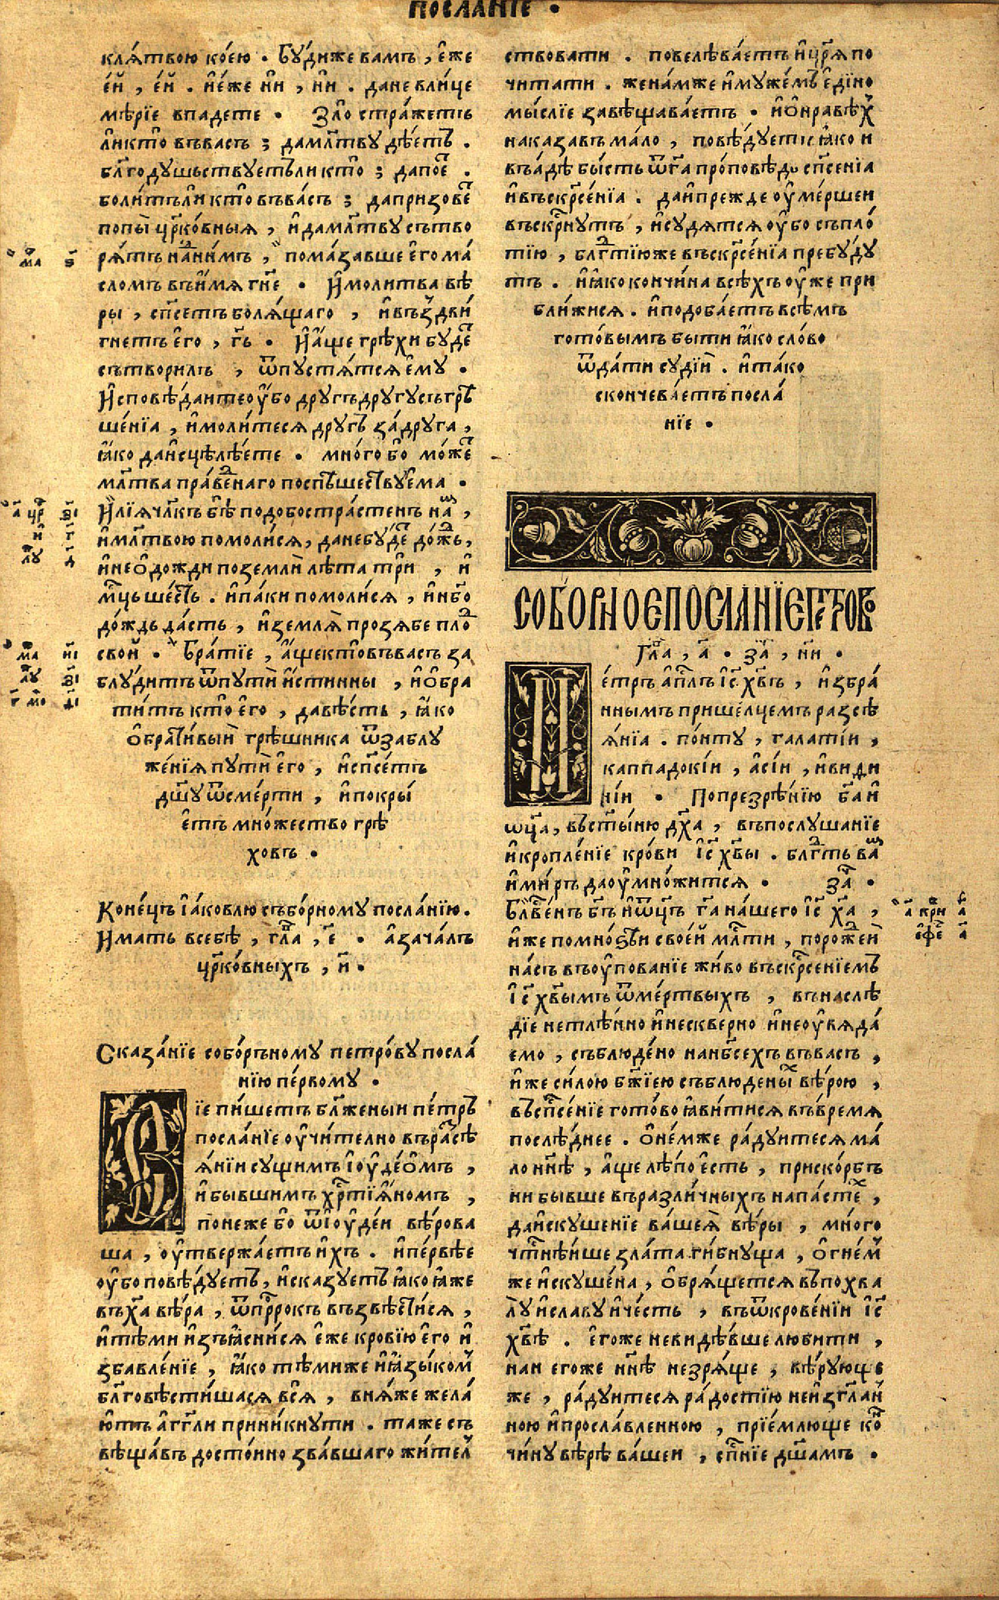 посланїе .
клѧ́твою коею . Бꙋ́диже вамъ , є҆́же
є҆́й , є҆́й . и҆е́же ни , ни . дане влице
мѣ́рїе впадете . Зло стра́жетъ
ликто въвасъ ; дамл҃твꙋ дѣ́етъ .
бл҃годꙋшьствꙋетъли кто ; дапое҆ .
боли́тъли кто въва́съ ; дапризове
попы̀ цр҃ко́вныѧ , и҆дамл҃твꙋ сътво
рѧ́тъ нани́мъ , пома́завше є҆го ма́
сломъ въи҆́мѧ гн҃е . И҆молитва вѣ́
ры , сп҃сетъ болѧ́щаго , и҆въздви́
гнетъ є҆го , гь҃ . И҆а҆́ще грѣхи бꙋде
сътвори́лъ , ѿпꙋстѧ́тсѧ є҆мꙋ .
И҆сповѣ́даитеоу҆́бо дрꙋгъдрꙋгꙋсъгрѣ
ше́нїа , и҆моли́тесѧ дрꙋгъ за́дрꙋга ,
ꙗ҆́ко даи҆сцѣлѣ́ете . мно́го бо мо́же
мл҃тва пра́веднаго поспѣшествꙋема .
И҆лїѧ чл҃къ бѣ̀ подобостра́стенъ на́ ,
и҆мл҃твою помоли́сѧ , данебꙋ́де до́ждь ,
и҆нео҆дожди поземли̂ лѣ́та три̂ , и҆
мц҃ъ ше́сть . и҆па́ки помоли́сѧ , и҆нб҃о
до́ждь да́сть , и҆землѧ̀ прозѧ́бе пло
сво́й . Бра́тїе , а҆́щекто въва́съ за
блꙋ́дитъ ѿпꙋти̂ и҆́стинны , и҆ѡ҆бра
ти́тъ кто̀ є҆го , давѣ́сть , ꙗ҆́ко
ѡ҆брати́выи̂ грѣ́шника ѿзаблꙋ
же́нїѧ пꙋти̂ є҆го , и҆сп҃се́тъ
дш҃ꙋ ѿсме́рти , и҆покры́
є҆тъ мно́жество грѣ
хо́въ .
Коне́цъ і҆а́ковлю събо́рномꙋ посла́нїю .
И҆мать всебѣ̀ , гл҃а , є҃ . а҆зача́лъ
цр҃ко́вныхъ , и҃ .
Сказа́нїе собо́рьномꙋ петро́вꙋ посла́
нїю пе́рвомꙋ .
Сїе пи́шетъ бл҃же́ныи пе́тръ
посла́нїе оу҆чи́телно въра́сѣ
ѧ́нїи сꙋщимъ і҆оу҆де́ѡмъ ,
и҆ бы́вшимъ хр҃тїѧ́номъ ,
поне́же бо ѿі҆оу҆де́и вѣ́рова
ша , оу҆твержа́етъ и҆́хъ . и҆пе́рвѣе
оу҆́бо повѣ́дꙋетъ , и҆сказꙋетъ ꙗ҆́ко ꙗ҆́же
въхⷭ҇а вѣ́ра , ѿпр҃рокъ възвѣсти́сѧ ,
и҆тѣ́ми и҆зъꙗ҆сни́сѧ є҆́же кро́вїю є҆го и҆
збавле́нїе , ꙗ҆́ко тѣ́миже и҆ꙗ҆зы́ком
бл҃говѣсти́шасѧ всѧ̂ , внѧ́же жела́
ютъ а҆́гг҃ли прини́кнꙋти . та́же съ
вѣща́въ досто́ино зва́вшаго жи́тел
ствовати . повелѣва́етъ и҆цр҃ѧ по
чита́ти . жена́мже и҆мꙋже́мъ є҆ди́но
мы́слїе завѣщава́етъ . и҆ѡ҆нравѣ́х
наказа́въ ма́ло , повѣ́дꙋетъ ꙗ҆́ко и
въа҆́дѣ бы́сть ѿгⷭ҇а про́повѣдь сп҃се́нїа
и҆въскр҃се́нїа . даи҆пре́жде оу҆ме́ршеи
въскр҃нꙋтъ , и҆сꙋ́дѧтсѧ оу҆́бо съпло́
тїю , бл҃гтїюже въскр҃се́нїа пребꙋдꙋ
тъ . и҆ꙗ҆́ко кончи́на всѣ́хъ оу҆́же при
бли́жисѧ . и҆подоба́етъ всѣ́мъ
гото́вымъ бы́ти ꙗ҆́ко сло́во
ѿда́ти сꙋдїи̂ . и҆та́ко
скончева́етъ посла́
нїе .
СОБОРНОЕ ПОСЛАНЇЕ ПЕТРОВО
Гл҃а , а҃ . за҃ , н҃и .
Пе́тръ а҆пл҃ъ і҆с҃ хв҃ъ , и҆збра́
ннымъ прише́лцемъ разсѣ́
ѧ҆нїа . по́нтꙋ , гала́тїи ,
каппадокі́и , а҆сі́и , и҆види
ні́и . По презрѣ́нїю бг҃а и҆
ѡц҃а , въст҃ы́ню дх҃а , въпослꙋша́нїе
и҆кропле́нїе кро́ви і҆с҃ хв҃ы . бл҃гть ва
и҆ми́ръ даоу҆мно́житсѧ . за҃ .
Бл҃ве́нъ бг҃ъ и҆ѿц҃ъ гⷭ҇а на́шего і҆с҃ хⷭ҇а ,
и҆́же помно́ѕѣи свое́й мл҃ти , поро́жей
на́съ въоу҆пова́нїе жи́во въскр҃се́нїемъ
і҆с҃ хв҃ымъ ѿме́ртвыхъ , въна́слѣ
дїе нетлѣ́нно и҆нескве́рно и҆неоу҆вѧда́
емо , съблюде́но нанб҃сехъ въва́съ ,
и҆́же си́лою бж҃їею съблюде́ны вѣ́рою ,
въсп҃се́нїе гото́во ꙗ҆ви́тисѧ въвре́мѧ
послѣ́днее . ѡ҆не́мже ра́дꙋитесѧ ма́
ло нн҃ѣ , а҆́ще лѣ́по є҆сть , приско́рбъ
ни бы́вше въразли́чныхъ напа́сте ,
даи҆скꙋше́нїе ва́шеѧ̀ вѣ́ры , много
чт҃нѣ́ише зла́та ги́бнꙋща , ѡ҆гнем
же и҆скꙋше́на , ѡ҆брѧ́щетсѧ въпохва
лꙋ и҆сла́вꙋ и҆че́сть , въѿкрове́нїи і҆с҃
хв҃ѣ . є҆го́же неви́дѣвше любити ,
нан егоже нн҃ѣ незрѧ́ще , вѣ́рꙋюще
же , ра́дꙋитесѧ ра́достїю неи҆зг҃лан
ною и҆просла́вленною , прїе́млюще ко
чи́нꙋ вѣ́рѣ ва́шеи , сп҃нїе дш҃а́мъ .